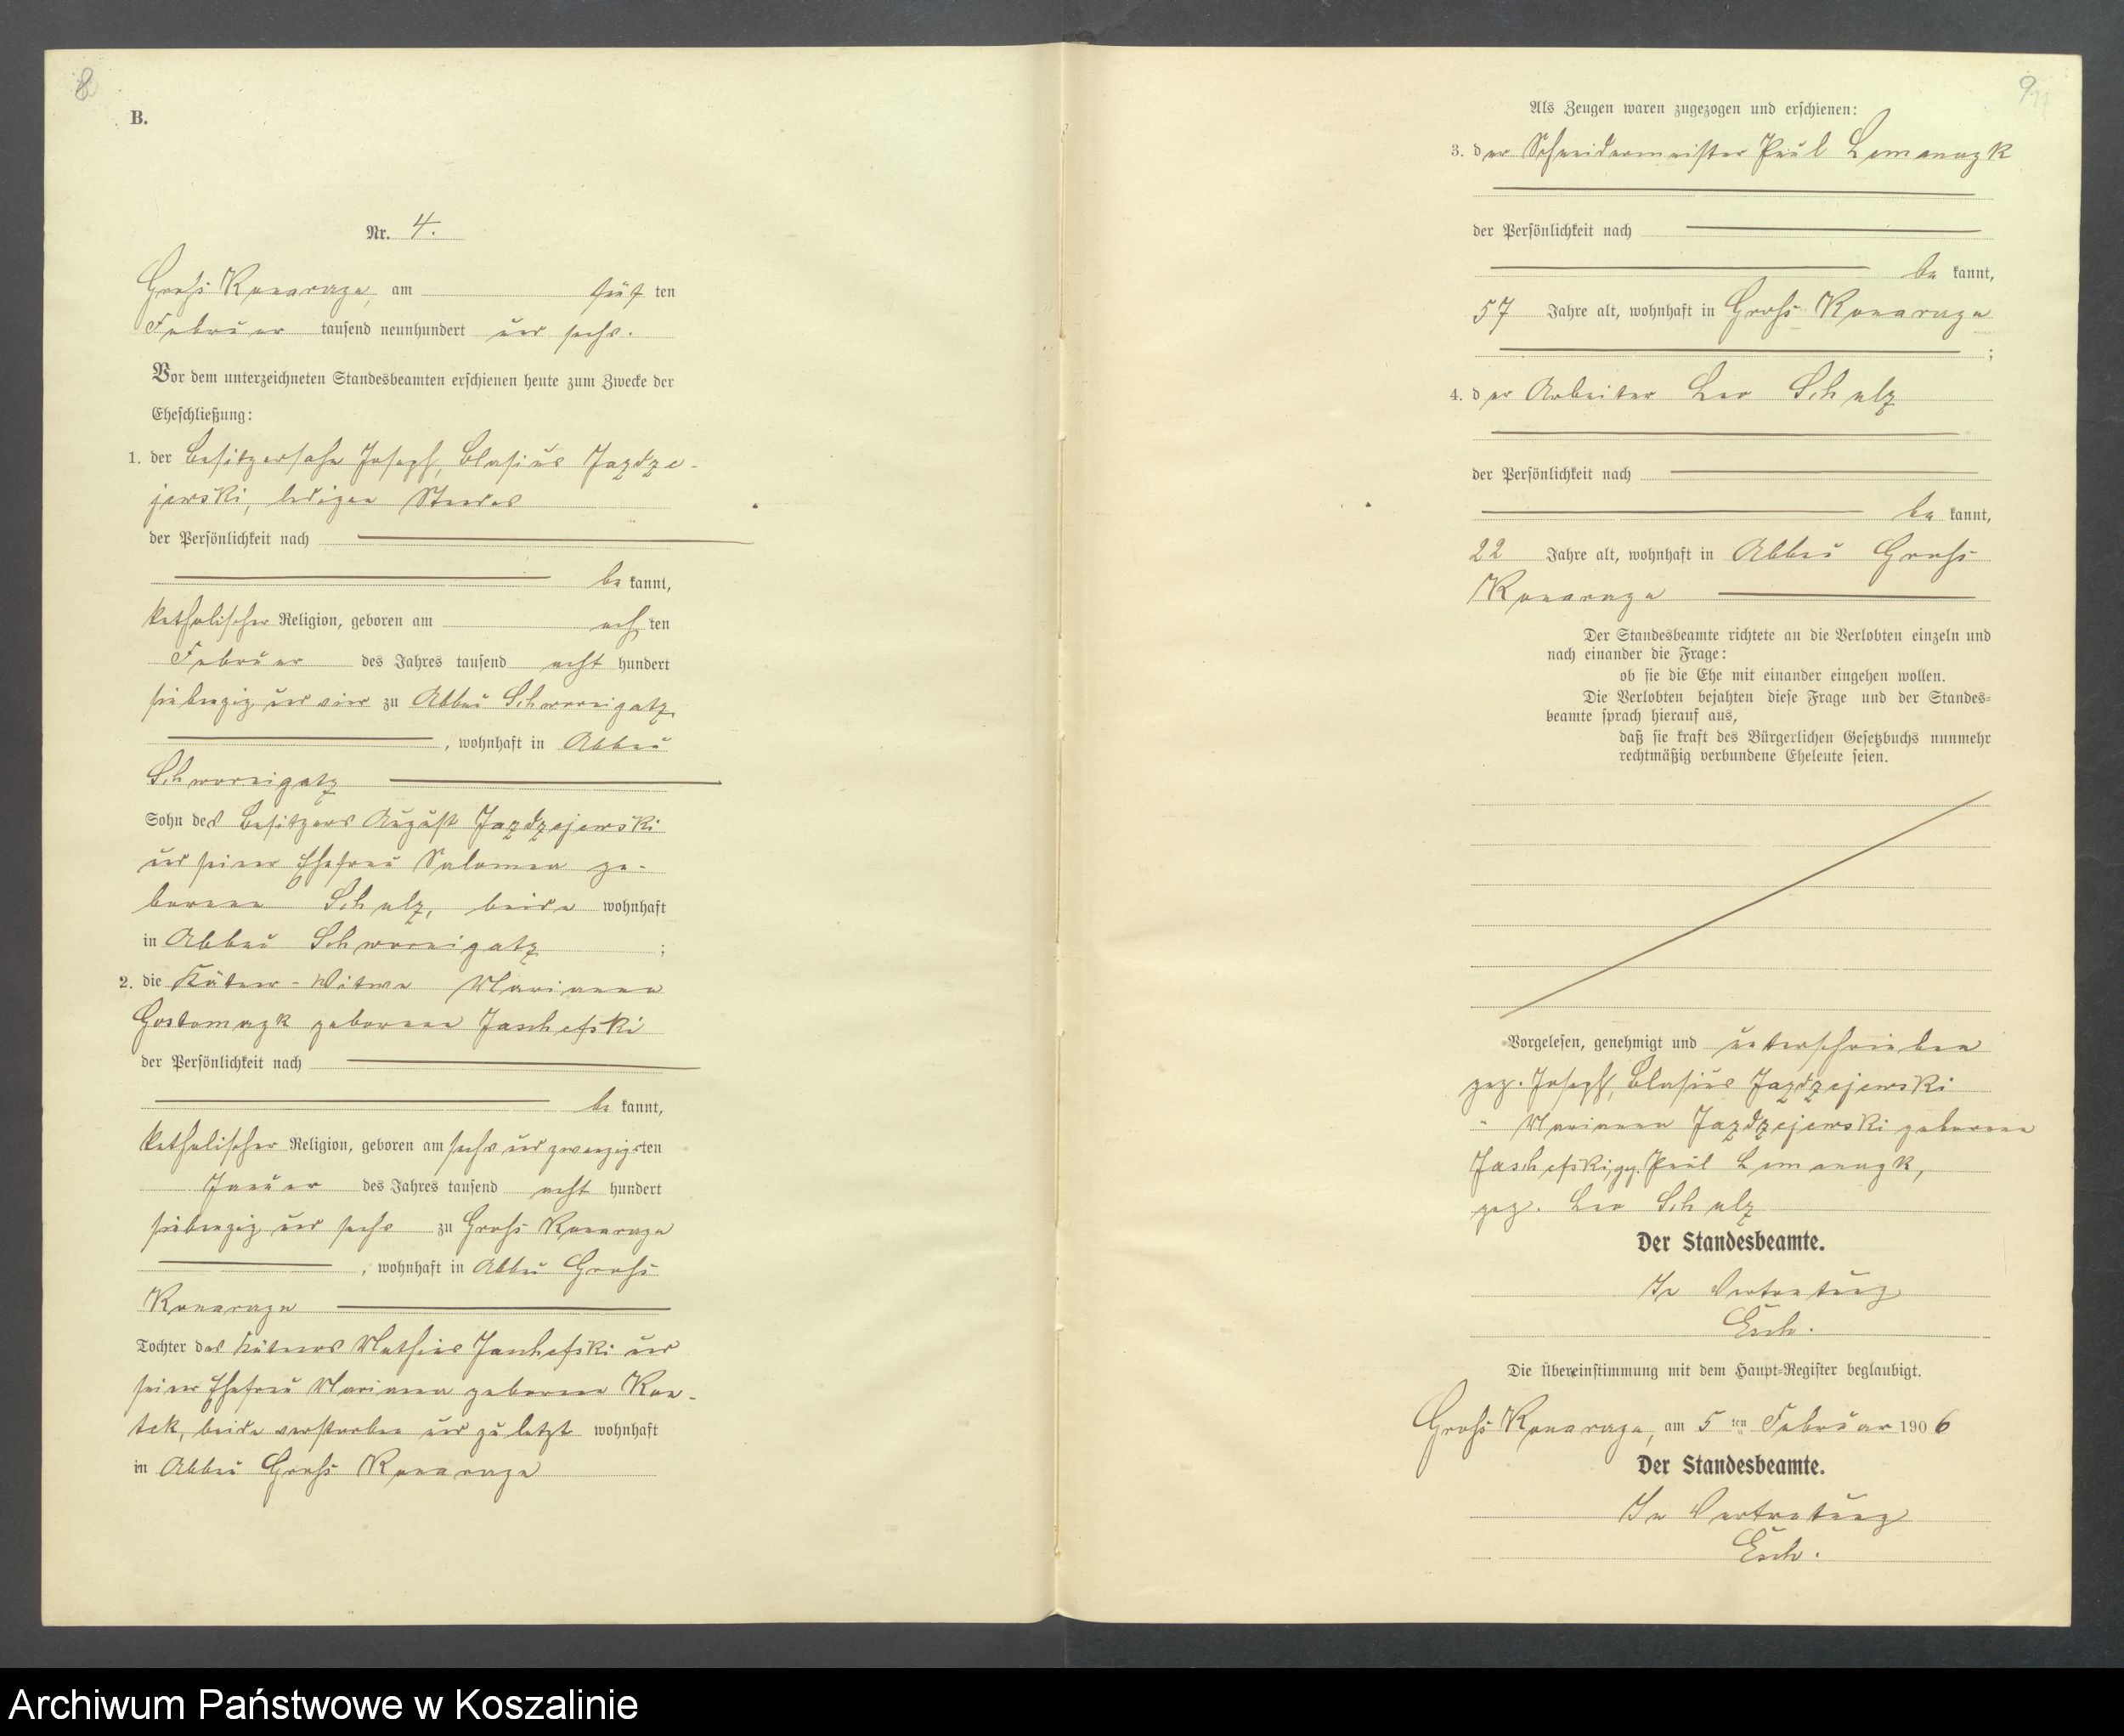 8
B.
Nr. 4.
Groß Konarzyn, am fünften
Februar tausend neunhundert und sechs.
Vor dem unterzeichneten Standesbeamten erschienen heute zum Zwecke der
Eheschließung:
1. der Besitzersohn Joseph, Blasius Jazdze-
jewski, ledigen Standes
der Persönlichkeit nach
be kannt,
katholischer Religion, geboren am achten
Februar des Jahres tausend acht hundert
siebenzig und vier zu Abbau Schwornigatz
, wohnhaft in Abbau
Schwornigatz
Sohn des Besitzers August Jazdzejewski
und seiner Ehefrau Salomea ge-
borenen Schulz, beide wohnhaft
in Abbau Schwornigatz ;
2. die Kätner-Witwe Marianna
Gostomczyk geborene Jaschefski
der Persönlichkeit nach
be kannt,
katholischer Religion, geboren am sechs und zwanzigsten
Januar des Jahres tausend acht hundert
siebenzig und sechs zu Groß Konarzyn
, wohnhaft in Abbau Groß
Konarzyn
Tochter des Kätners Mathias Jaschefski und
seiner Ehefrau Marianna geborene Kon-
tek, beide verstorben und zu letzt wohnhaft
in Abbau Groß Konarzyn
9
Als Zeugen waren zugezogen und erschienen:
3. der Schneidermeister Paul
der Persönlichkeit nach
be kannt,
57 Jahre alt, wohnhaft in Groß Konarzyn
;
4. der Arbeiter Leo Schulz
der Persönlichkeit nach
be kannt,
22 Jahre alt, wohnhaft in Abbau Groß
Konarzyn
Der Standesbeamte richtete an die Verlobten einzeln und
nach einander die Frage:
ob sie die Ehe mit einander eingehen wollen.
Die Verlobten bejahten diese Frage und der Standes=
beamte sprach hierauf aus,
daß sie kraft des Bürgerlichen Gesetzbuchs nunmehr
rechtmäßig verbundene Eheleute seien.
Vorgelesen, genehmigt und unterschrieben
gez. Joseph, Blasius Jazdzejewski
" Marianna Jazdzejewski geborene
Jaschefski, gez. Paul
gez. Leo Schulz
Der Standesbeamte.
In Vertretung
Esch.
Die Übereinstimmung mit dem Haupt=Register beglaubigt.
Groß Konarzyn, am 5 ten Februar 1906
Der Standesbeamte.
In Vertretung
Esch.
Archiwum Państwowe w Koszalinie